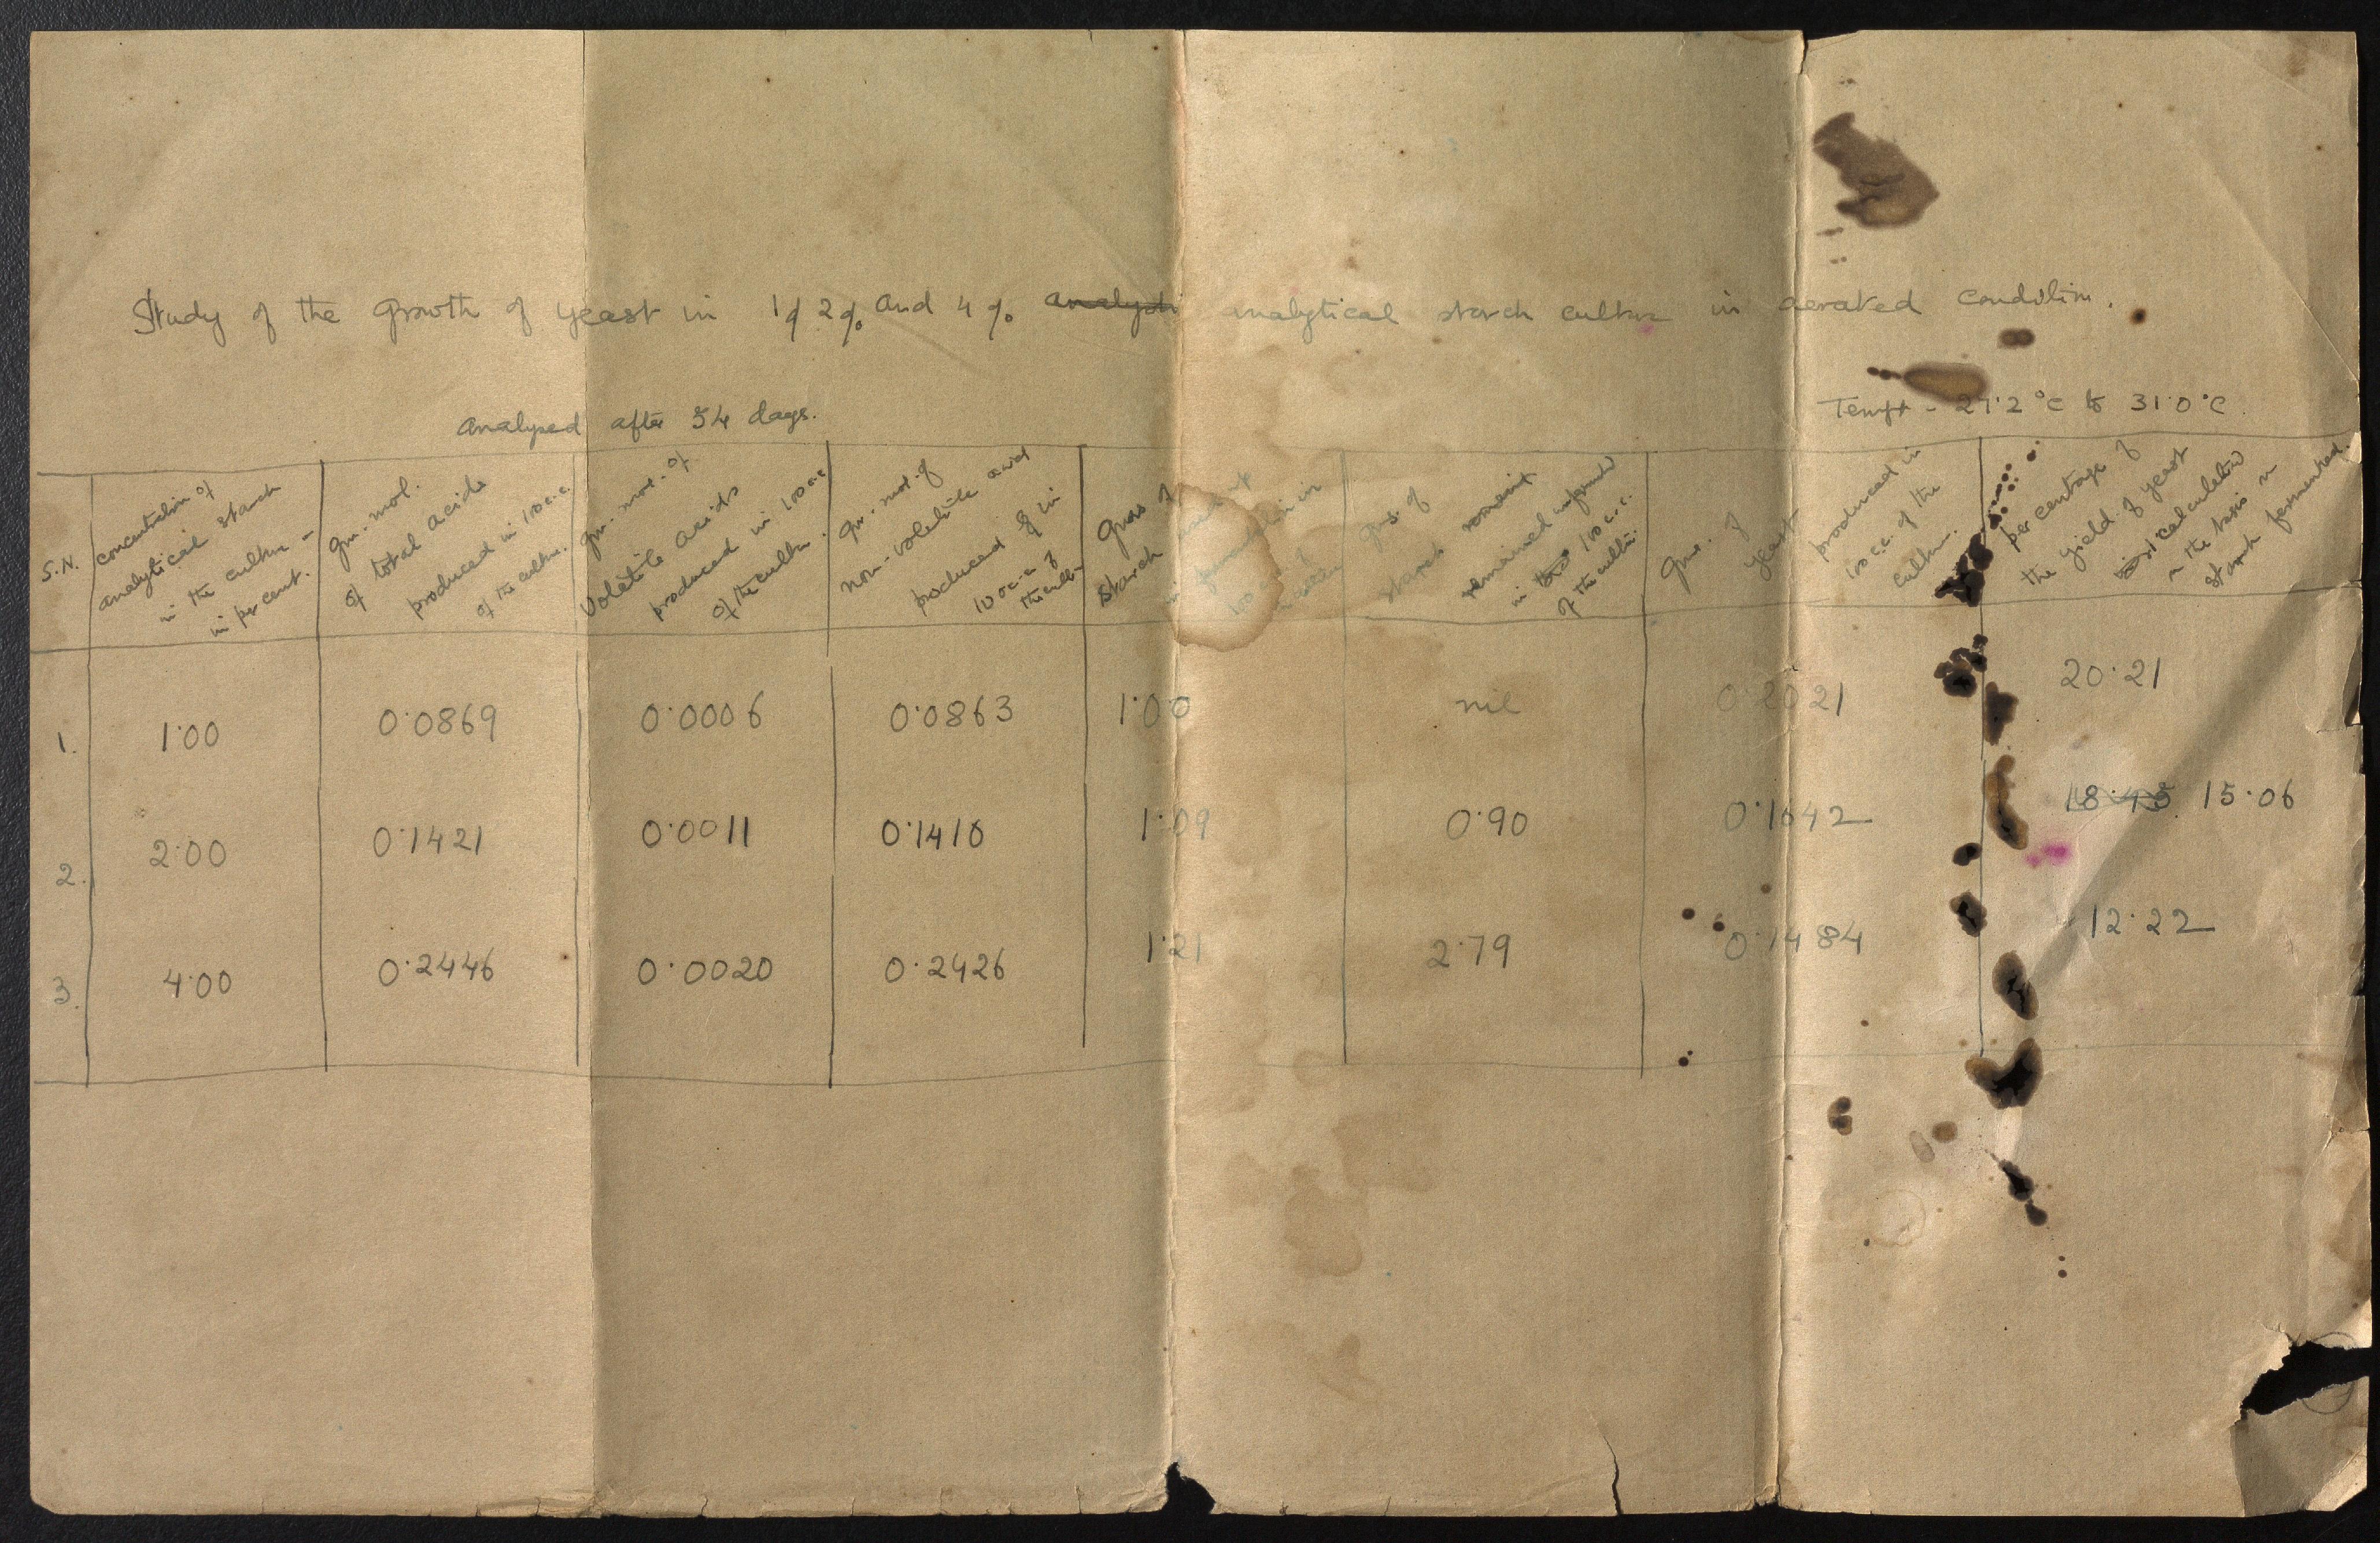 Study of the growth of yeast in 1% 2% and 4% analyti analytical starch culture in aerated condition.
Analysed after 54 days.
Tempt - 27.2°C to 31.0°C.
S.N.
concentration of
analytical starch
in the culture -
in per cent.
gm. mol.
of total acids
produced in 100 c.c.
of the culture.
gm. mol. of
volatile acids
produced in 100 c.c.
of the culture.
gm. mol. of
non-volatile acid
produced in
100 c.c. of
the culture
gms of
starch
in
100
gms. of
starch
remained
in 100 c.c.
of the culture.
gms. of
yeast
produced in
100 c.c. of the
culture.
percentage of
the yield of yeast
calculated
on the basis of
starch fermented.
1. 1.00 0.0869 0.0006 0.0863 1.00 nil 0.2021 20.21
2. 2.00 0.1421 0.0011 0.1410 1.09 0.90 0.1642 15.06
3. 4.00 0.2446 0.0020 0.2426 1.21 2.79 0.1484 12.22